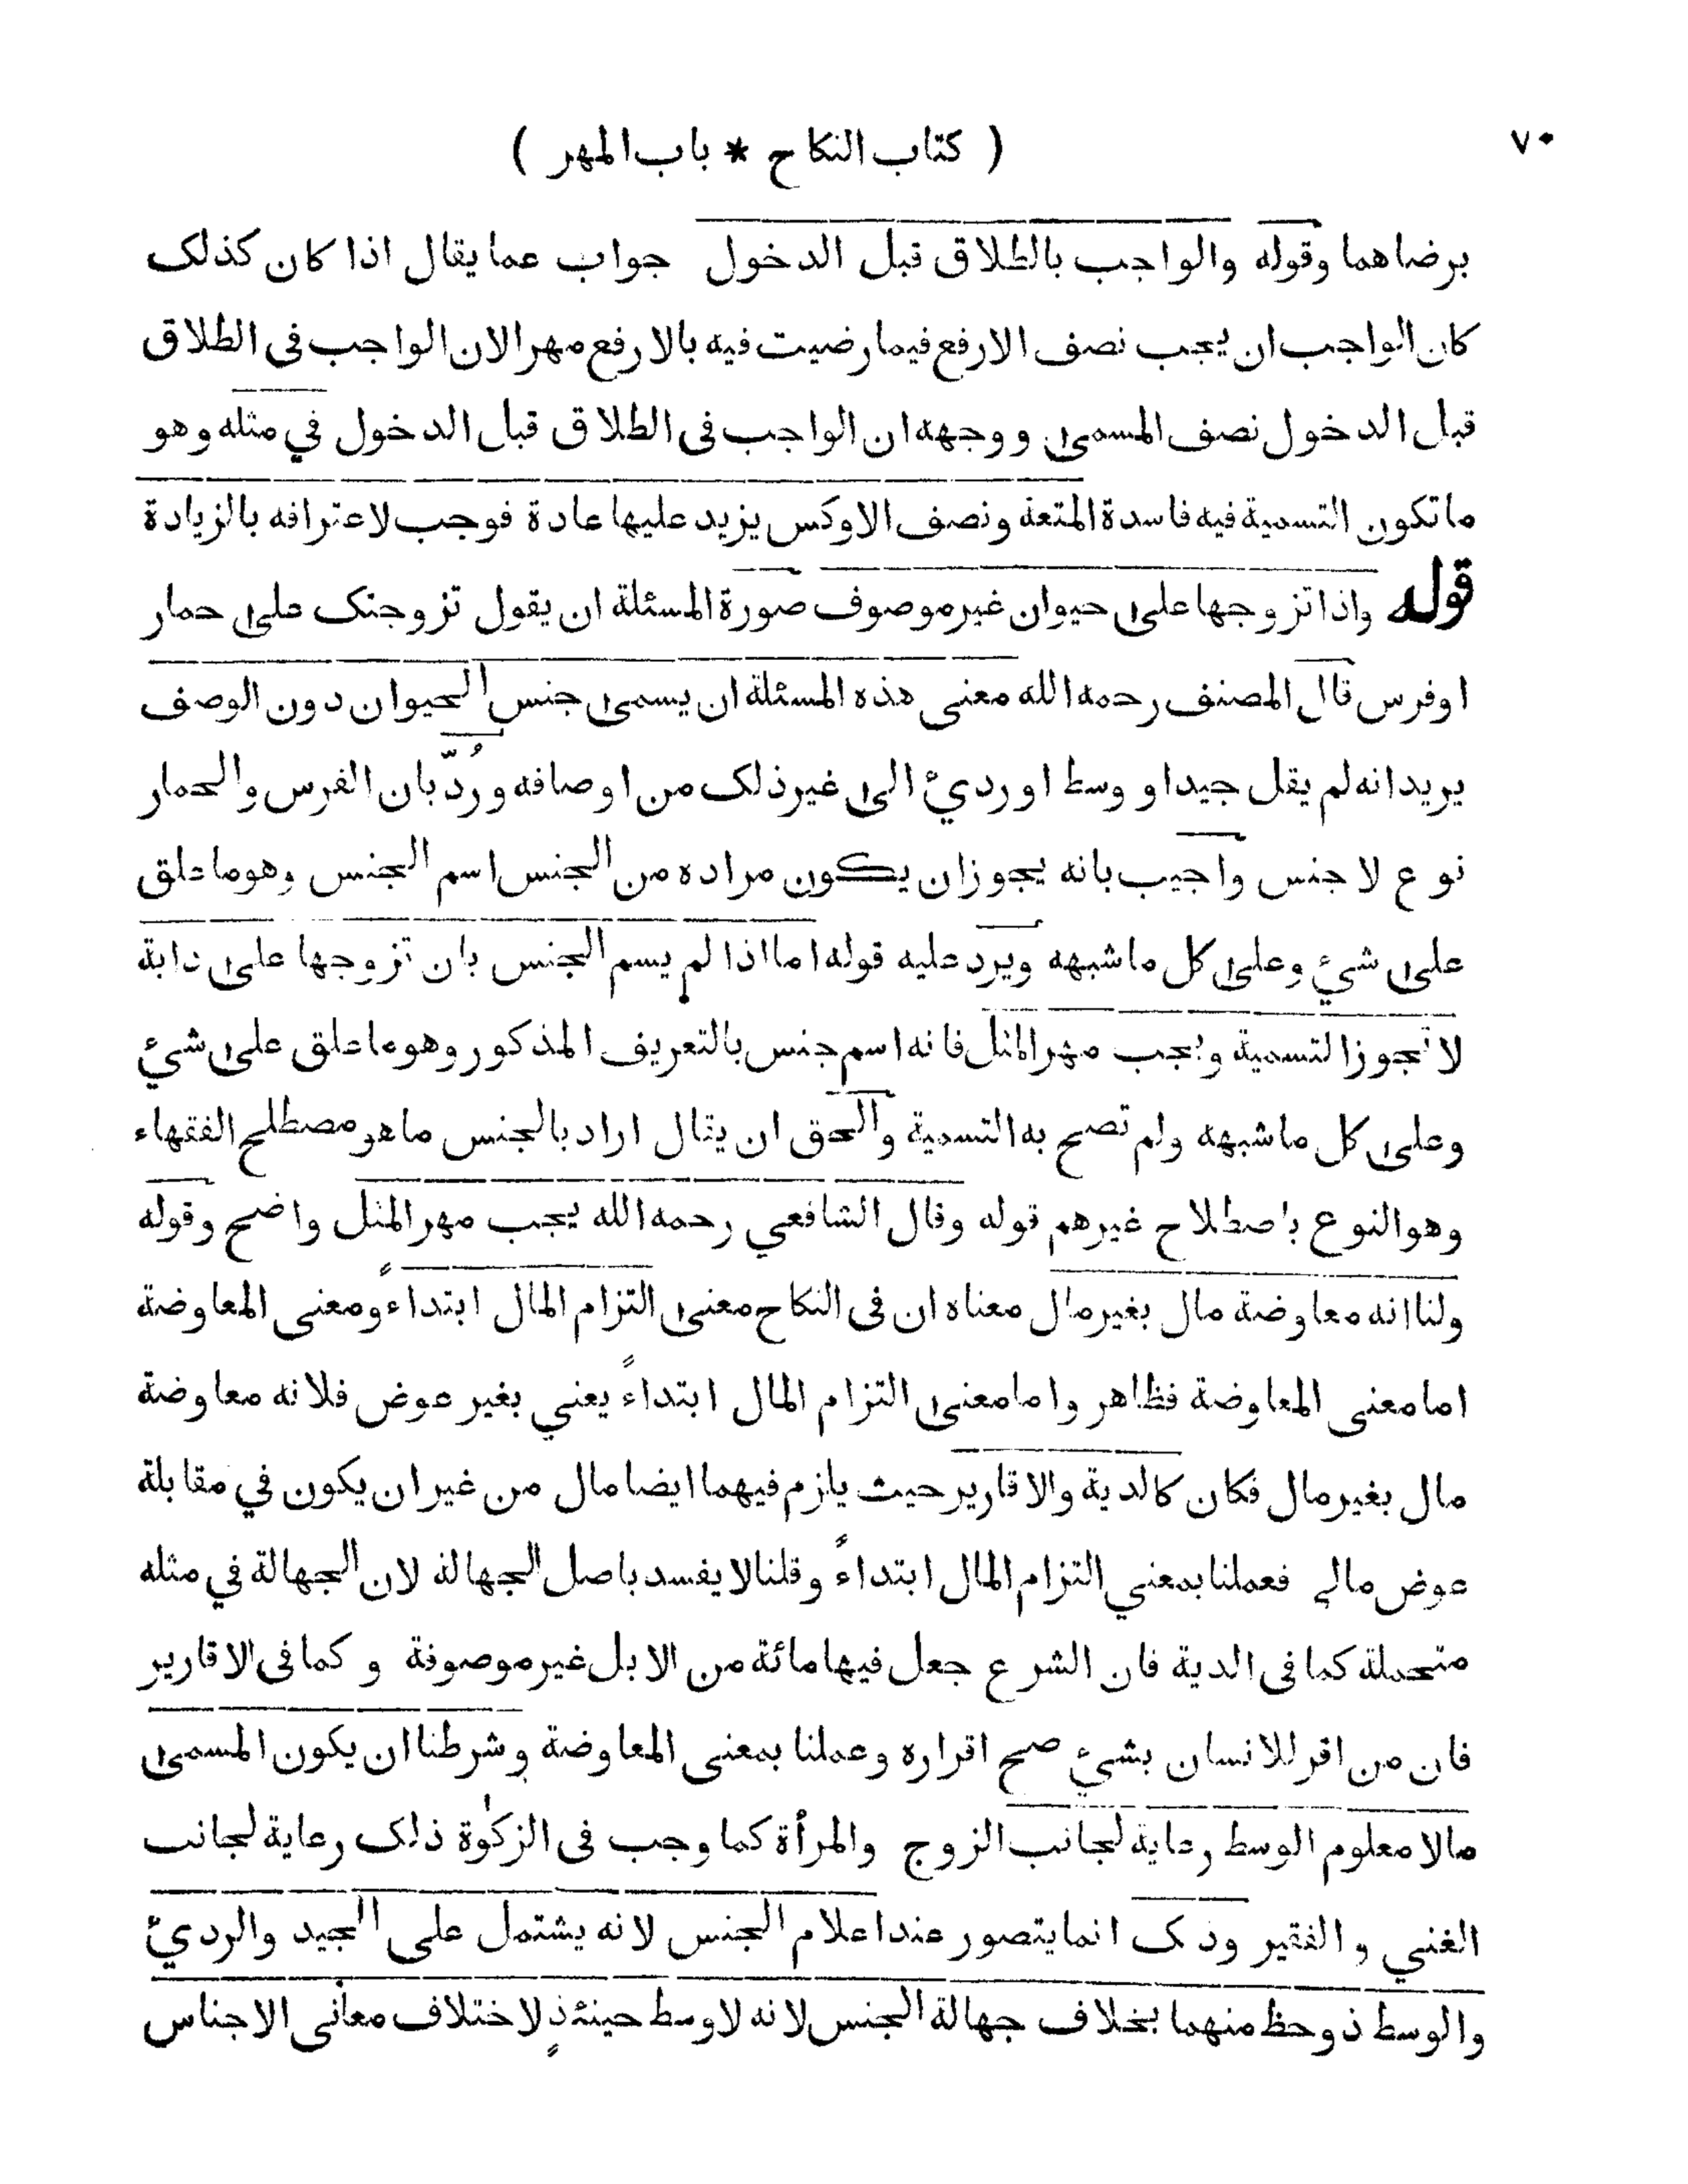 ٧٠
( كتاب النكاح * باب المهر )
برضاهما وقوله والواجب بالطلاق قبل الدخول جواب عما يقال اذا كان كذلك
كان الواجب ان يجب نصف الارفع فيما رضيت فيه بالارفع مهرا لان الواجب فى الطلاق
قبل الدخول نصف المسمى ووجهه ان الواجب فى الطلاق قبل الدخول في مثله وهو
ما تكون التسمية فيه فاسدة المتعة ونصف الاوكس يزيد عليها عادة فوجب لاعترافه بالزيادة
قوله واذا تزوجها على حيوان غير موصوف صورة المسئلة ان يقول تزوجتك على حمار
او فرس قال المصنف رحمه الله معنى هذه المسئلة ان يسمى جنس الحيوان دون الوصف
يريد انه لم يقل جيد او وسط او رديئ الى غير ذلك من اوصافه ورُدّ بان الفرس والحمار
نوع لا جنس واجيب بانه يجوز ان يكون مراده من الجنس اسم الجنس وهو ما علق
على شيئ وعلى كل ما شبهه ويرد عليه قوله اما اذا لم يسم الجنس بان تزوجها على دابة
لا تجوز التسمية ويجب مهر المثل فانه اسم جنس بالتعريف المذكور وهو ما علق على شيئ
وعلى كل ما شبهه ولم تصح به التسمية والحق ان يقال اراد بالجنس ما هو مصطلح الفقهاء
وهو النوع باصطلاح غيرهم قوله وقال الشافعي رحمه الله يجب مهر المثل واضح وقوله
ولنا انه معاوضة مال بغير مال معناه ان فى النكاح معنى التزام المال ابتداءً ومعنى المعاوضة
اما معنى المعاوضة فظاهر واما معنى التزام المال ابتداءً يعني بغير عوض فلانه معاوضة
مال بغير مال فكان كالدية والاقارير حيث يلزم فيهما ايضا مال من غير ان يكون في مقابلة
عوض مالي فعملنا بمعني التزام المال ابتداءً وقلنا لا يفسد باصل الجهالة لان الجهالة في مثله
متحملة كما فى الدية فان الشرع جعل فيها مائة من الابل غير موصوفة وكما فى الاقارير
فان من اقر للانسان بشيئ صح اقراره وعملنا بمعنى المعاوضة وشرطنا ان يكون المسمى
مالا معلوم الوسط رعاية لجانب الزوج والمرأة كما وجب فى الزكوة ذلك رعاية لجانب
الغني والفقير وذلك انما يتصور عند اعلام الجنس لانه يشتمل على الجيد والرديئ
والوسط ذو حظ منهما بخلاف جهالة الجنس لانه لا وسط حينئذٍ لاختلاف معانى الاجناس